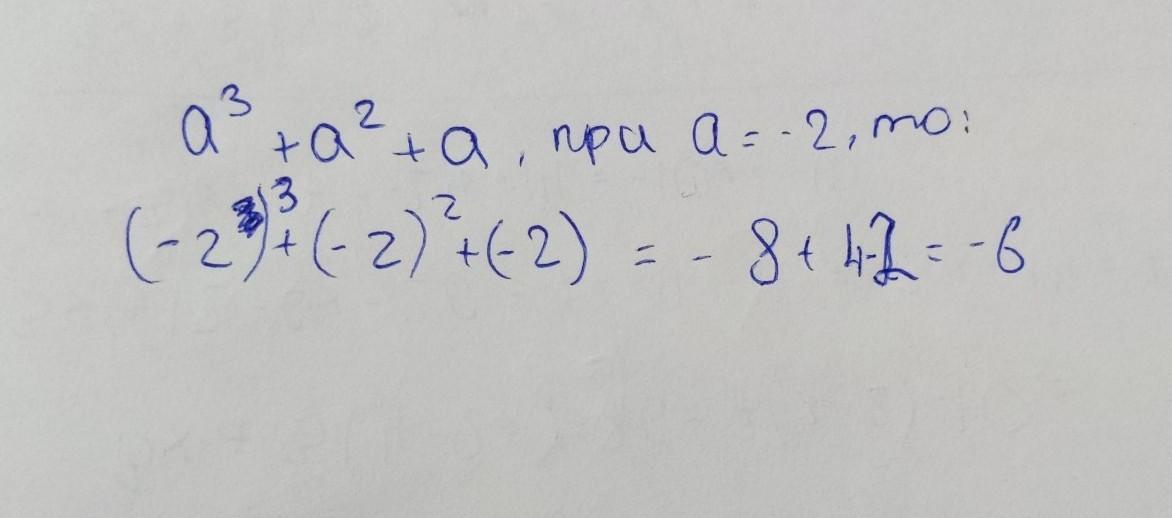 a³ + a² + a, при a = -2, то:
(-2)³ + (-2)² + (-2) = - 8 + 4-2 = -6